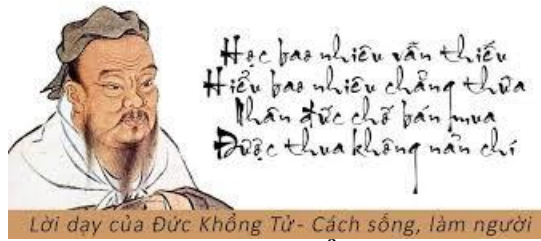 Học bao nhiêu vẫn thiếu
Hiểu bao nhiêu chẳng thừa
Nhân đức chớ bán mua
Được thua không nản chí
Lời dạy của Đức Khổng Tử- Cách sống, làm người